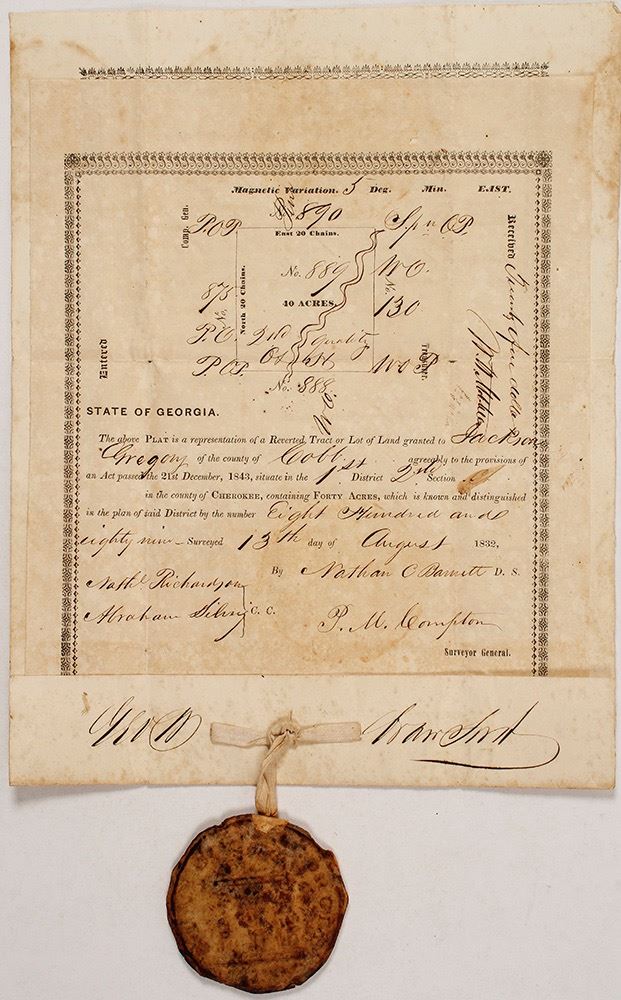 Magnetic Variation. 5 Deg. Min. EAST.
890
Comp. Gen.
P.O.P.
East 20 Chains.
Spn OP
Received Twenty five dollars
No. 889
W O.
No. 878
North 20 Chains.
40 ACRES
No. 130
P.O.
2nd quality
Entered
P.O.P.
Treasurer.
W O P
No. 888
STATE OF GEORGIA.
The above PLAT is a representation of a Reverted Tract or Lot of Land granted to Jackson
Gregory of the county of Cobb agreeably to the provisions of
an Act passed the 21st December, 1843, situate in the 1st District 2nd Section
in the county of CHEROKEE, containing FORTY ACRES, which is known and distinguished
in the plan of said District by the number Eight Hundred and
eighty nine Surveyed 13th day of August 1832,
By Nathan C Barnett D. S.
Nathl Richardson
Abraham C. C.
P. M. Compton
Surveyor General.
Geo W Crawford